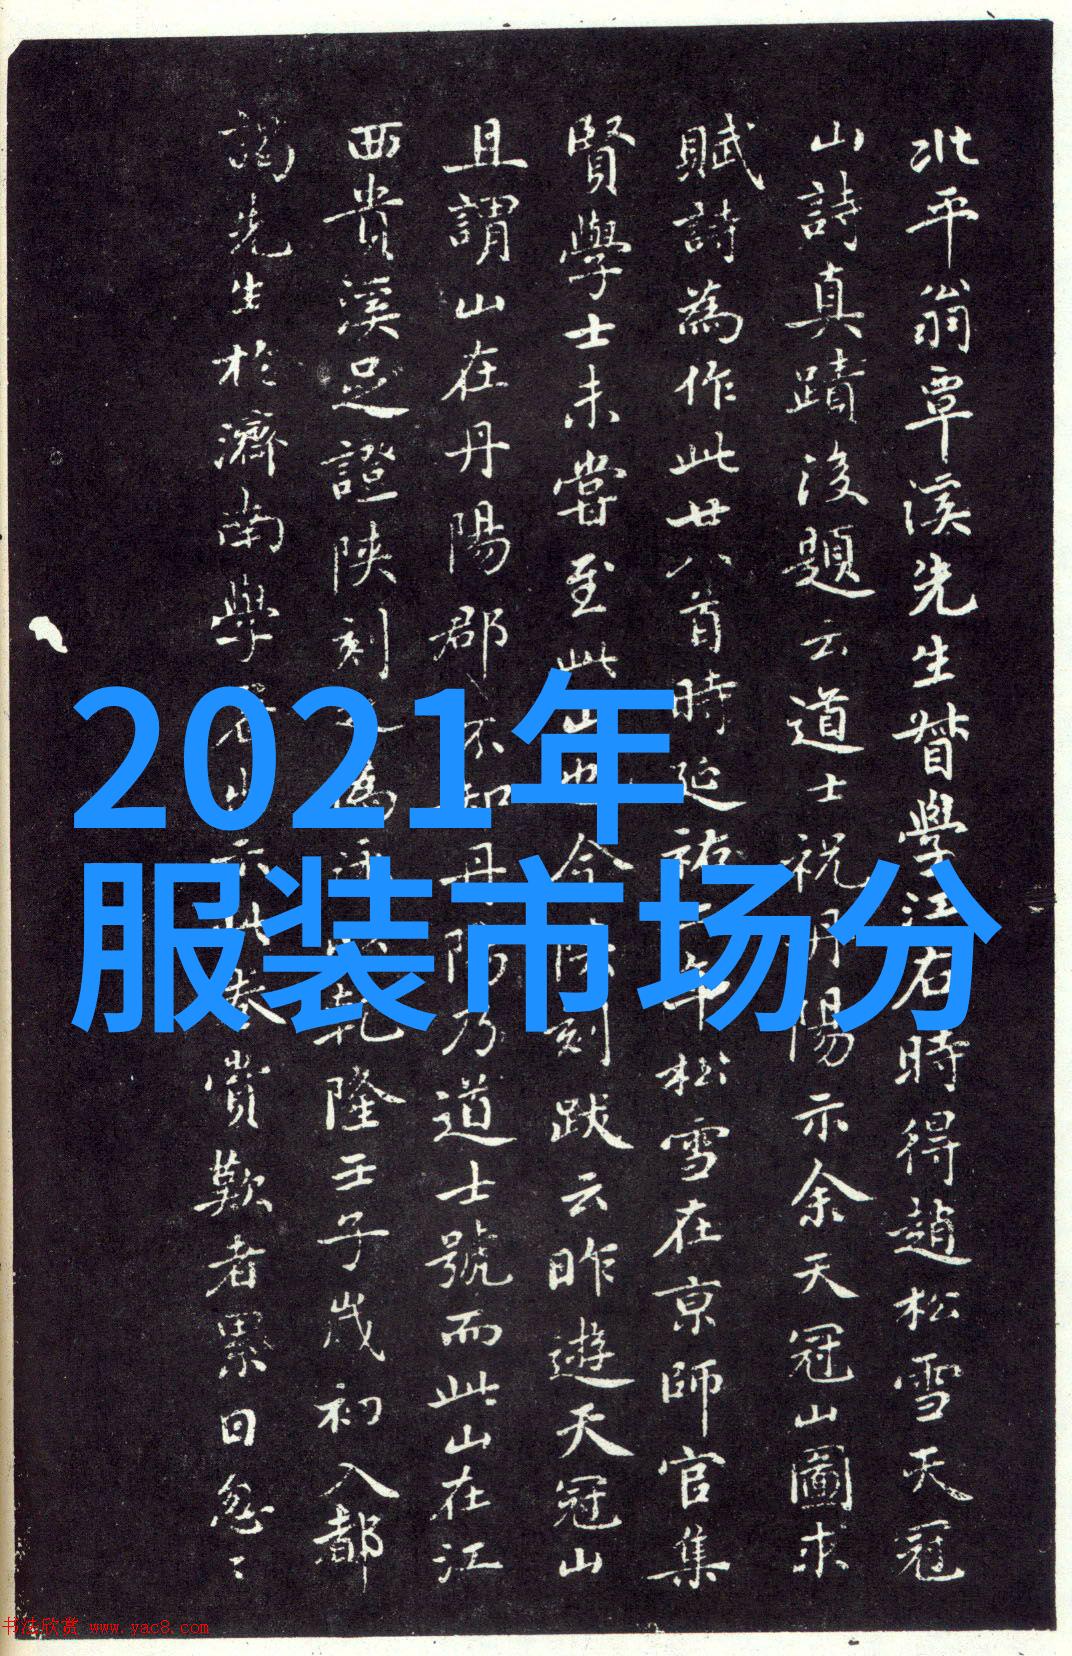 北平翁覃溪先生督學江右時得趙松雪天冠
山詩真蹟後題云道士祝丹陽示余天冠山圖求
賦詩為作此廿八首時延祐二年松雪在京師官集
賢學士未嘗至此山也今陕刻跋云昨遊天冠山
且謂山在丹陽郡不知丹陽乃道士號而此山在江
西貴溪足證陕刻之為乾隆壬子歲初入都
謁先生於濟南學賞歎者累日忽〻
2021年
服装市场分
书法欣赏 www.yac8.com